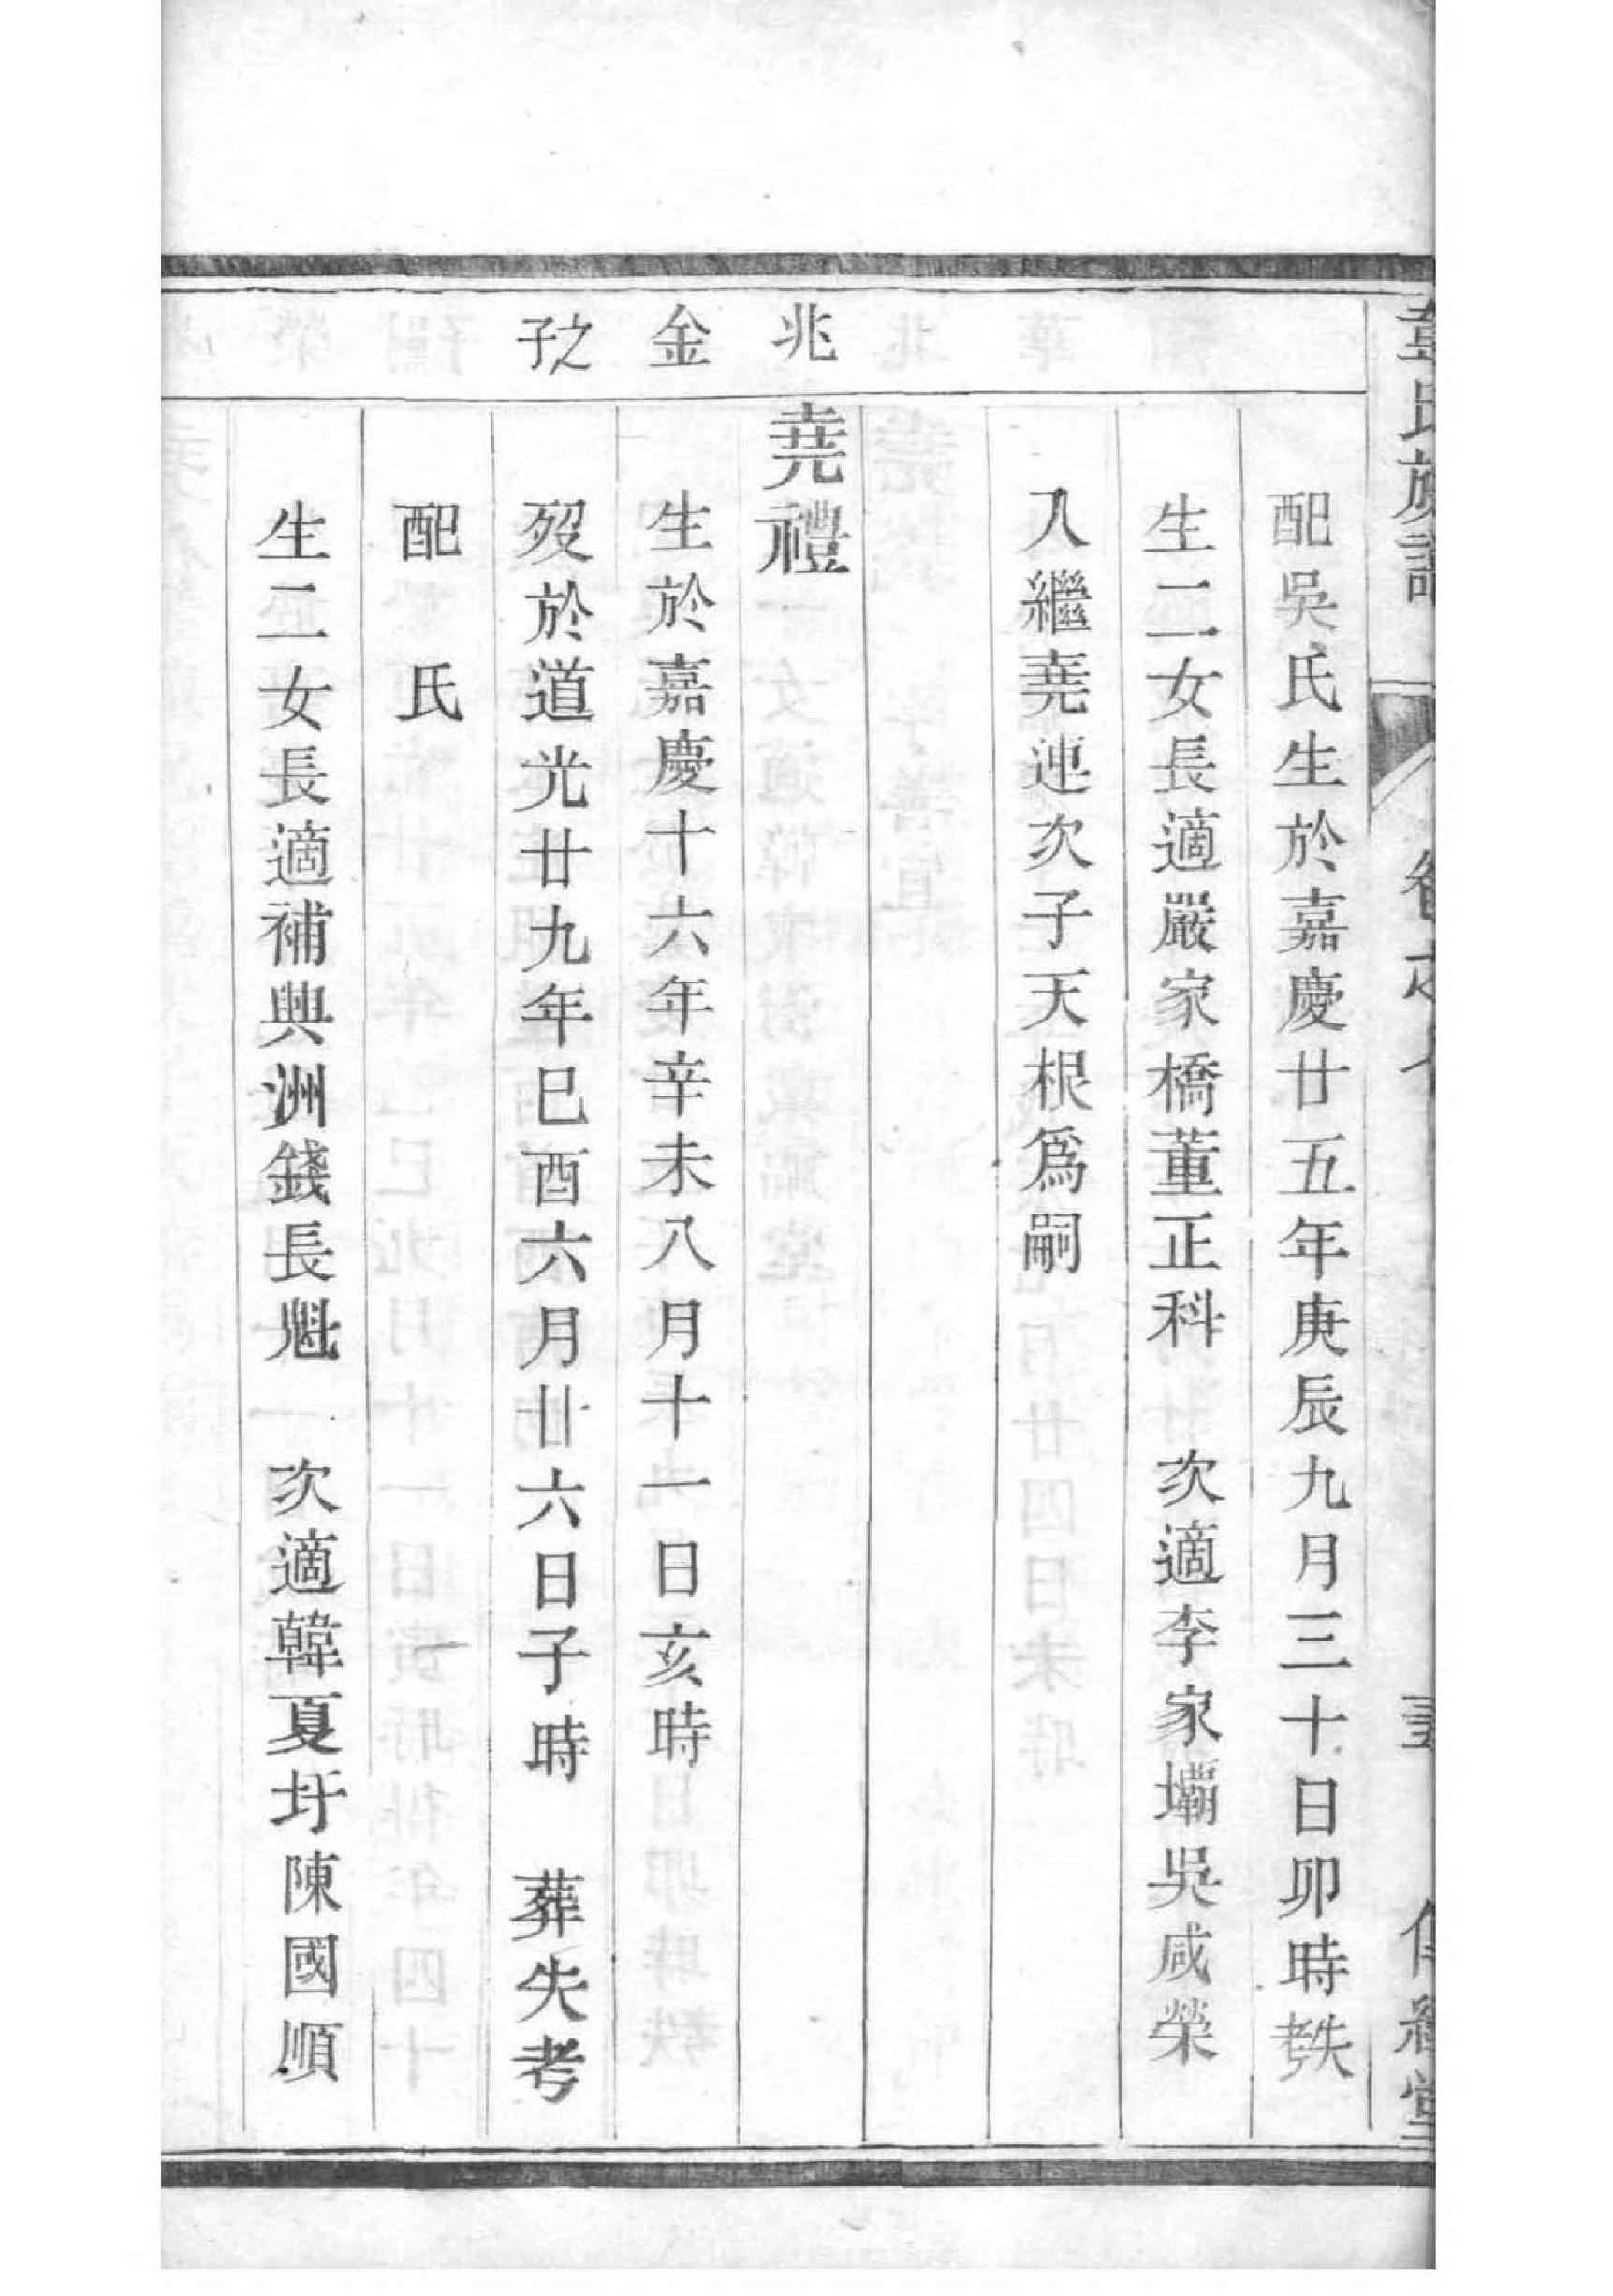 氏族譜
配吳氏生於嘉慶廿五年庚辰九月三十日卯時失考
生二女長適嚴家橋董正科 次適李家壩吳咸榮
入繼尭連次子天根為嗣
兆金之子
尭禮
生於嘉慶十六年辛未八月十一日亥時
歿於道光廿九年巳酉六月廿六日子時 葬失考
配 氏
生二女長適補興洲錢長魁 次適韓夏圩陳國順